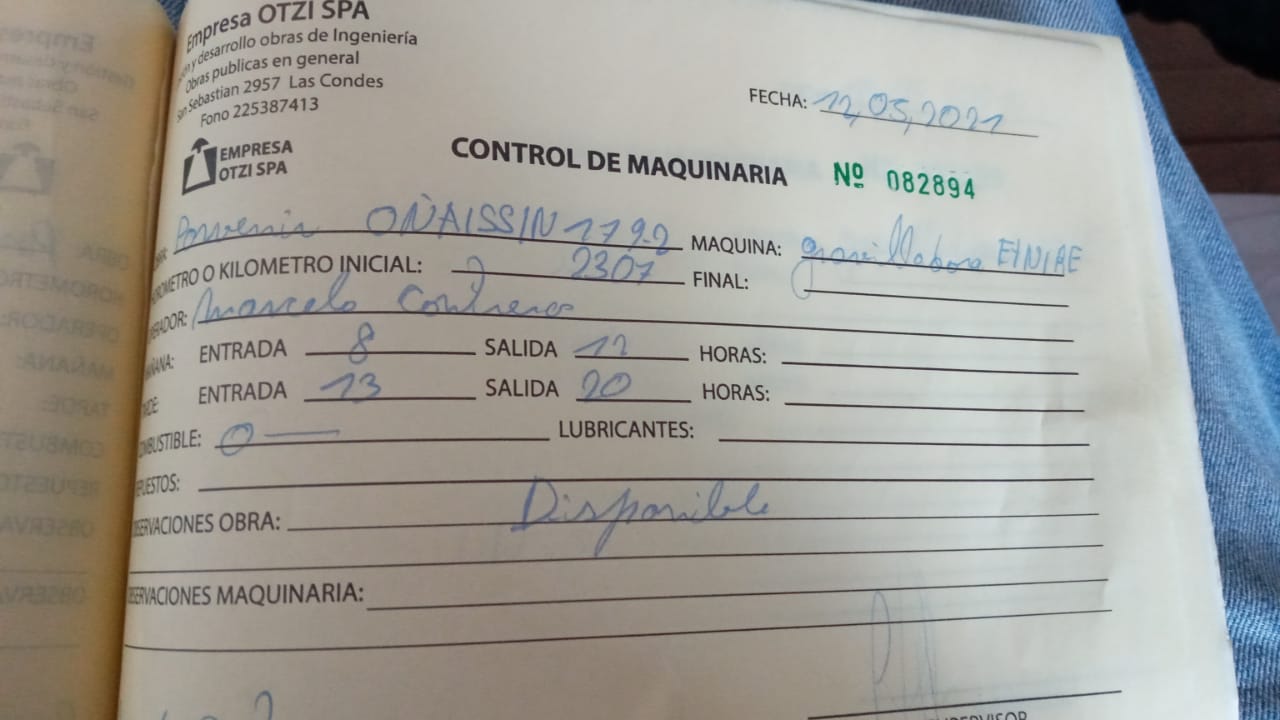 Empresa OTZI SPA
y desarrollo obras de Ingeniería
Obras publicas en general
San Sebastian 2957 Las Condes
Fono 225387413
FECHA: 12,05,2021
EMPRESA
OTZI SPA
CONTROL DE MAQUINARIA Nº 082894
Porvenir OÑAISSIN 179-2 MAQUINA: gravilladora ETNIAE
HOROMETRO O KILOMETRO INICIAL: 2307 FINAL:
OPERADOR: Marcelo Contreras
MAÑANA: ENTRADA 8 SALIDA 12 HORAS:
TARDE: ENTRADA 13 SALIDA 20 HORAS:
COMBUSTIBLE: 0 LUBRICANTES:
REPUESTOS:
OBSERVACIONES OBRA: Disponible
OBSERVACIONES MAQUINARIA:
SUPERVISOR